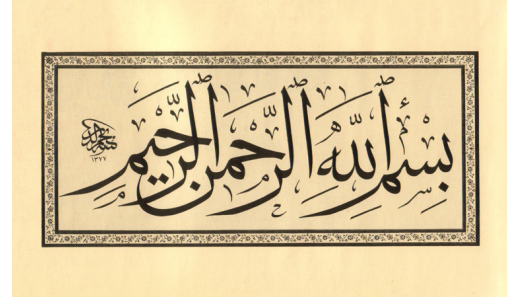 بِسْمِ اللَّهِ الرَّحْمٰنِ الرَّحِيمِ
١٣٧٧